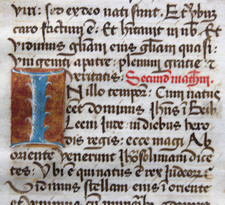 sed ex deo nati sunt. Et
caro factum ē: Et hitauit in nb. Et
vidimus gliam eius gliam quasi
vnigeniti a patre: plenum gracie
veritatis. Secund
In illo tempor: Cum natus
eet dominus Jhūs ī Beth
leem iude in diebus hero
dis regis: ecce magi Ab
oriente venerunt Jhosolimam dicē
tes: Vbi ē qui natus ē rex iudeor
Vidimus stellam eius in oriente
et